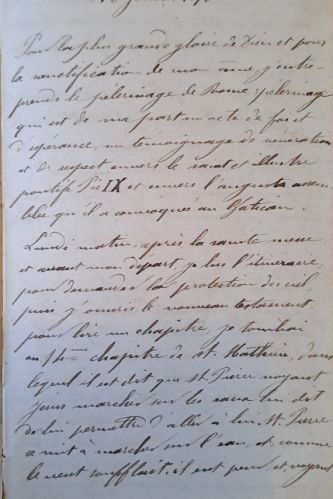 Pour la plus grande gloire de Dieu et pour
la sanctification de mon âme, j'entre-
prends le pèlerinage de Rome, pèlerinage
qui est de ma part un acte de foi et
d'espérance, un témoignage de vénération
et de respect envers le saint et illustre
pontife Pie IX et envers l'auguste assem-
blée qu'il a convoquée au Vatican.
Lundi matin, après la sainte messe
et avant mon départ, je lus l'itinéraire
pour demander la protection du ciel,
puis j'ouvris le nouveau testament
pour lire un chapitre, je tombai
au 14ème chapitre de st. Mathieu, dans
lequel il est dit que st. Pierre voyant
Jésus marcher sur les eaux lui dit
de lui permettre d'aller à lui. St. Pierre
se mit à marcher sur l'eau, et comme
le vent soufflait, il eut peur et voyant